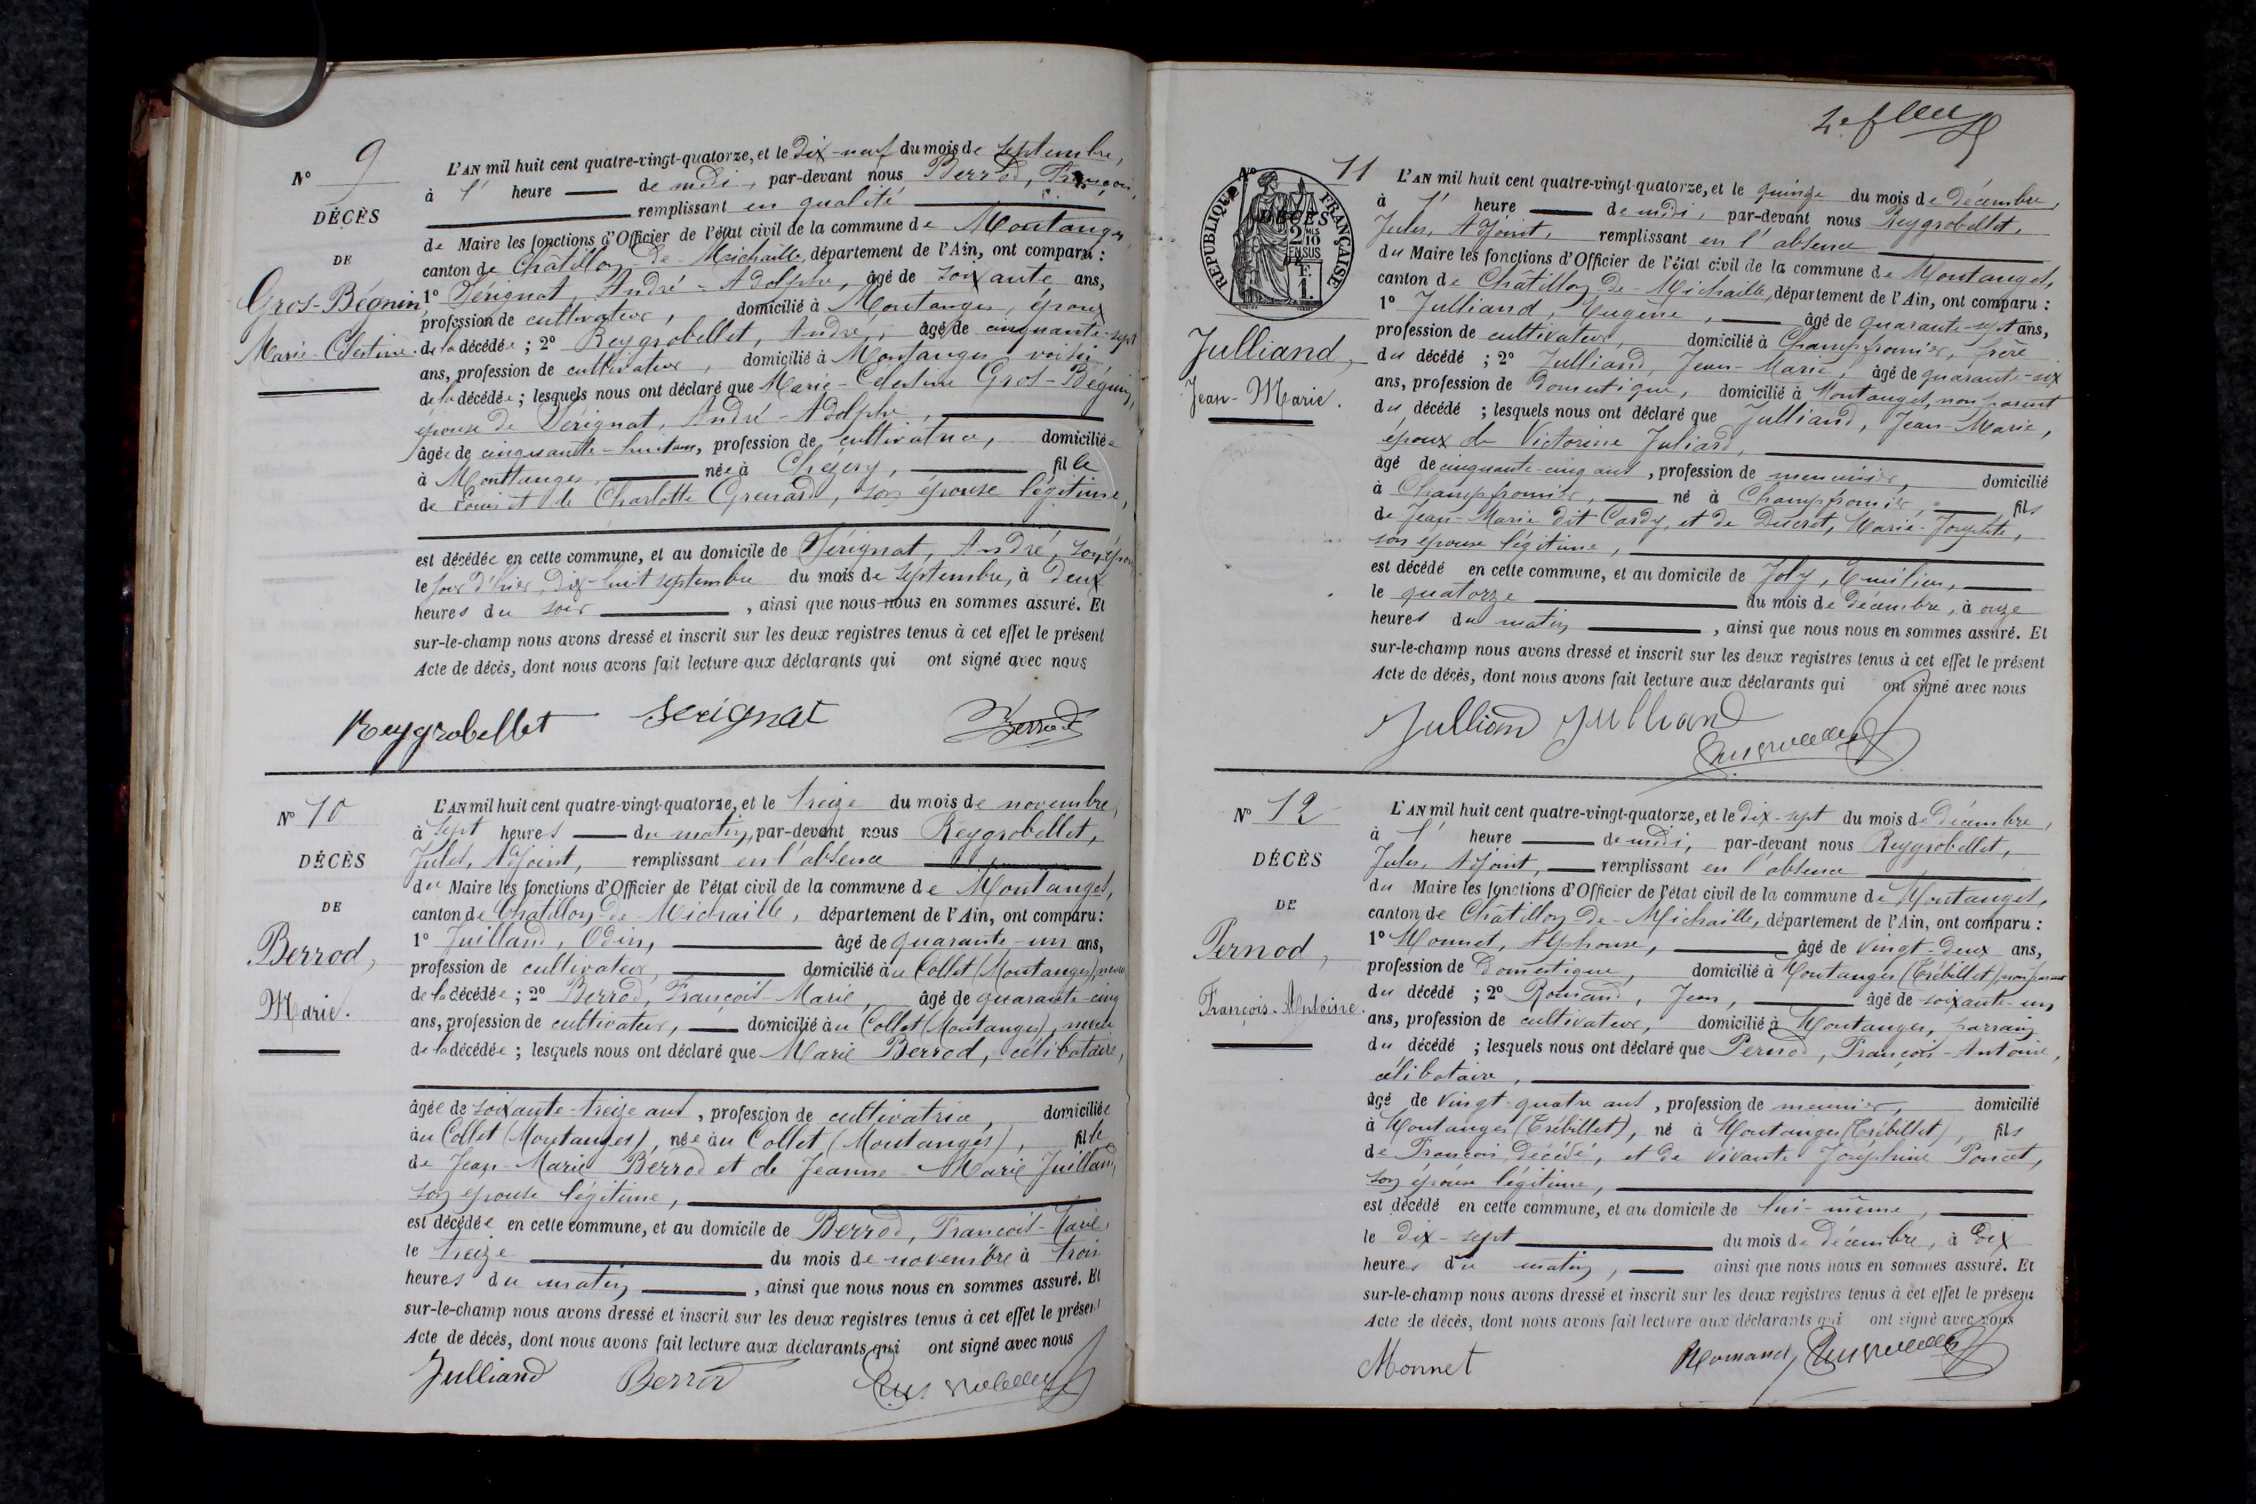 N° 9
DÉCÈS
DE
Gros-Béguin,
Marie-Célestine.
L'AN mil huit cent quatre-vingt-quatorze, et le dix-neuf du mois de septembre,
à 1 heure de midi, par-devant nous Berrod, François,
remplissant en qualité
de Maire les fonctions d'Officier de l'état civil de la commune de Montanges,
canton de Châtillon-de-Michaille, département de l'Ain, ont comparu :
1° Sérignat, André-Adolphe, âgé de soixante ans,
profession de cultivateur, domicilié à Montanges, époux
de la décédée ; 2° Reygrobellet, André, âgé de cinquante-sept
ans, profession de cultivateur, domicilié à Montanges, voisin
de la décédée ; lesquels nous ont déclaré que Marie-Célestine Gros-Béguin,
épouse de Sérignat, André-Adolphe,
âgée de cinquante-huit ans, profession de cultivatrice, domiciliée
à Montanges, née à Chézery, fille
de Louis et de Charlotte Grenard, son épouse légitime,
est décédée en cette commune, et au domicile de Sérignat, André, son époux
le jour d'hier, dix-huit septembre du mois de septembre, à deux
heures du soir, ainsi que nous nous en sommes assuré. Et
sur-le-champ nous avons dressé et inscrit sur les deux registres tenus à cet effet le présent
Acte de décès, dont nous avons fait lecture aux déclarants qui ont signé avec nous
Reygrobellet Serignat Berrod
N° 10
DÉCÈS
DE
Berrod,
Marie.
L'AN mil huit cent quatre-vingt-quatorze, et le treize du mois de novembre,
à sept heures du matin, par-devant nous Reygrobellet,
Jules, Adjoint, remplissant en l'absence
du Maire les fonctions d'Officier de l'état civil de la commune de Montanges,
canton de Châtillon-de-Michaille, département de l'Ain, ont comparu :
1° Juilland, Odin, âgé de quarante-un ans,
profession de cultivateur, domicilié au Collet (Montanges), neveu
de la décédée ; 2° Berrod, François-Marie, âgé de quarante-cinq
ans, profession de cultivateur, domicilié au Collet (Montanges), neveu
de la décédée ; lesquels nous ont déclaré que Marie Berrod, célibataire,
âgée de soixante-treize ans, profession de cultivatrice, domiciliée
au Collet (Montanges), née au Collet (Montanges), fille
de Jean-Marie Berrod et de Jeanne-Marie Juilland,
son épouse légitime,
est décédée en cette commune, et au domicile de Berrod, François-Marie,
le treize du mois de novembre à trois
heures du matin, ainsi que nous nous en sommes assuré. Et
sur-le-champ nous avons dressé et inscrit sur les deux registres tenus à cet effet le présent
Acte de décès, dont nous avons fait lecture aux déclarants qui ont signé avec nous
Julliand Berrod
N° 11
RÉPUBLIQUE FRANÇAISE
DÉCÈS
2/10 EN SUS
1 F.
Julliand,
Jean-Marie.
L'AN mil huit cent quatre-vingt-quatorze, et le quinze du mois de décembre,
à 1 heure de midi, par-devant nous Reygrobellet,
Jules, Adjoint, remplissant en l'absence
du Maire les fonctions d'Officier de l'état civil de la commune de Montanges,
canton de Châtillon-de-Michaille, département de l'Ain, ont comparu :
1° Julliand, Eugène, âgé de quarante-sept ans,
profession de cultivateur, domicilié à Champfromier, frère
du décédé ; 2° Julliand, Jean-Marie, âgé de quarante-six
ans, profession de domestique, domicilié à Montanges, non parent
du décédé ; lesquels nous ont déclaré que Julliand, Jean-Marie,
époux de Victorine Juliard,
âgé de cinquante-cinq ans, profession de menuisier, domicilié
à Champfromier, né à Champfromier, fils
de Jean-Marie dit Cardy, et de Ducret, Marie-Josephte,
son épouse légitime,
est décédé en cette commune, et au domicile de Joly, Emilien,
le quatorze du mois de décembre, à onze
heures du matin, ainsi que nous nous en sommes assuré. Et
sur-le-champ nous avons dressé et inscrit sur les deux registres tenus à cet effet le présent
Acte de décès, dont nous avons fait lecture aux déclarants qui ont signé avec nous
Julliand Julliand
N° 12
DÉCÈS
DE
Pernod,
François-Antoine.
L'AN mil huit cent quatre-vingt-quatorze, et le dix-sept du mois de décembre,
à 1 heure de midi, par-devant nous Reygrobellet,
Jules, Adjoint, remplissant en l'absence
du Maire les fonctions d'Officier de l'état civil de la commune de Montanges,
canton de Châtillon-de-Michaille, département de l'Ain, ont comparu :
1° Monnet, Alphonse, âgé de vingt-deux ans,
profession de domestique, domicilié à Montanges (Trébillet), non parent
du décédé ; 2° Romand, Jean, âgé de soixante-un
ans, profession de cultivateur, domicilié à Montanges, parrain
du décédé ; lesquels nous ont déclaré que Pernod, François-Antoine,
célibataire,
âgé de vingt-quatre ans, profession de meunier, domicilié
à Montanges (Trébillet), né à Montanges (Trébillet), fils
de François, décédé, et de vivante Joséphine Poncet,
son épouse légitime,
est décédé en cette commune, et au domicile de lui-même,
le dix-sept du mois de décembre, à dix
heures du matin, ainsi que nous nous en sommes assuré. Et
sur-le-champ nous avons dressé et inscrit sur les deux registres tenus à cet effet le présent
Acte de décès, dont nous avons fait lecture aux déclarants qui ont signé avec nous
Monnet Romand